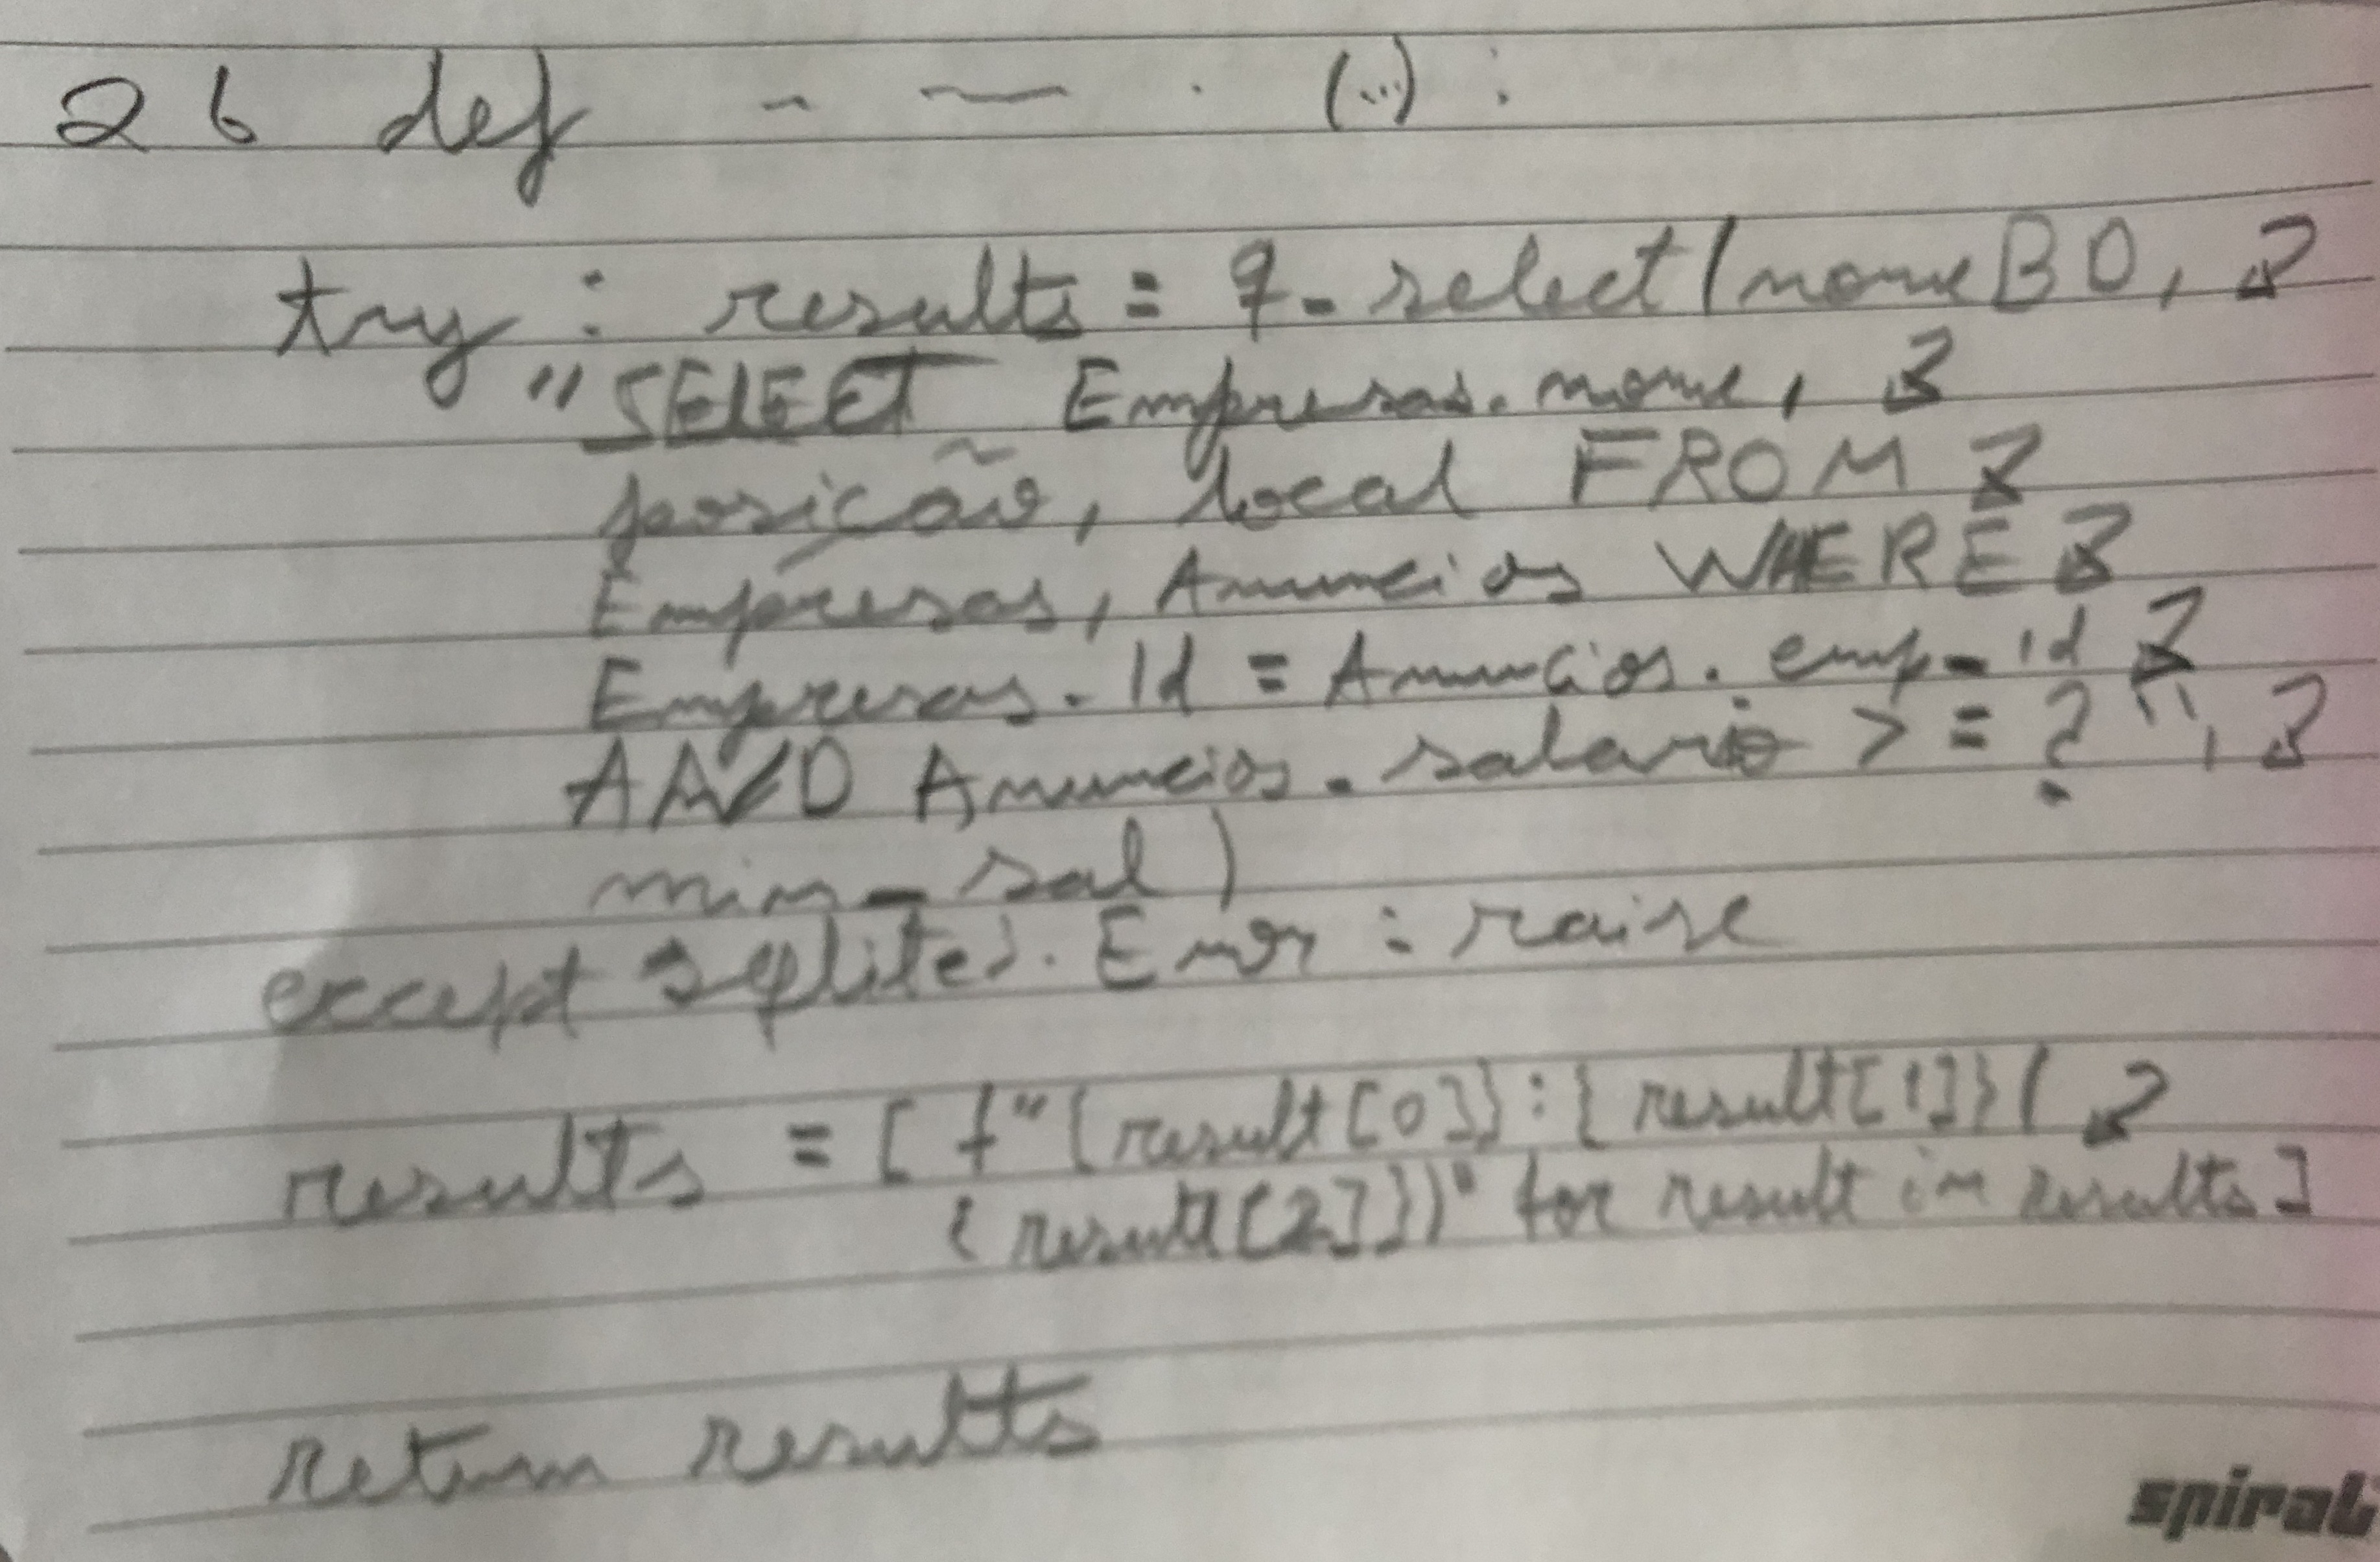 2b def - — . (...) :
try : results = q_select(nomeBD,
"SELECT Empresas.nome,
posição, local FROM
Empresas, Anuncios WHERE
Empresas.Id = Anuncios.emp_id
AND Anuncios.salario >= ?",
min_sal)
except sqlite3.Error : raise
results = [f"{result[0]}:{result[1]}(
{result[2]})" for result in results]
return results
spiral